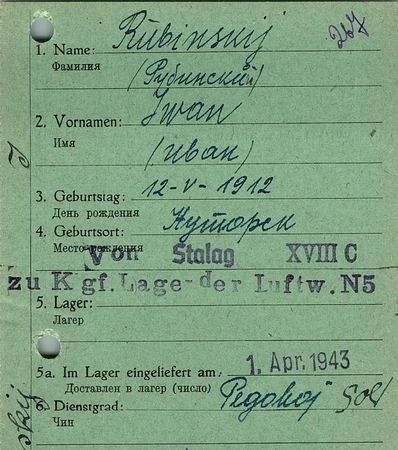 267
1. Name: Rubinskij
Фамилия (Рубинский)
2. Vornamen: Iwan
Имя (Иван)
3. Geburtstag: 12-V-1912
День рождения
4. Geburtsort:
Место рождения
Von Stalag XVIII C
zu Kgf. Lage-der Luftw. N5
5. Lager:
Лагерь
5a. Im Lager eingeliefert am: 1. Apr. 1943
Доставлен в лагерь (число)
6. Dienstgrad: Sold
Чин